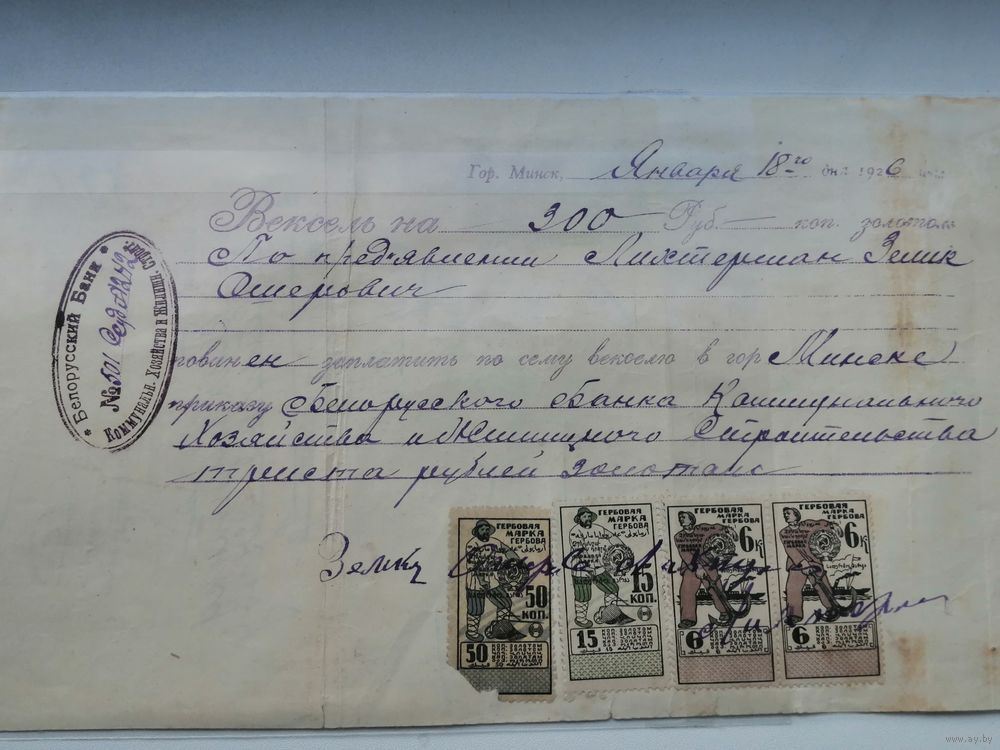 Гор. Минск, Января 18го дня 1926
Вексель на 300 Руб коп. золотом
По предявлении Лихтерман Зелик
Ошерович
повинен заплатить по сему векселю в гор Минске
приказу Белорусского Банка Коммунального
Хозяйства и Жилищного Строительства
триста рублей золотом
* Белорусский Банк *
№ 501
Коммунальн. Хозяйства и Жилищн. Строит.
Зелик
ГЕРБОВАЯ
МАРКА
ГЕРБОВА
50
КОП.
50
ГЕРБОВАЯ
МАРКА
ГЕРБОВА
15
КОП.
15
ГЕРБОВАЯ
МАРКА
ГЕРБОВА
6
К
6
ГЕРБОВАЯ
МАРКА
ГЕРБОВА
6
К
6
www.ay.by